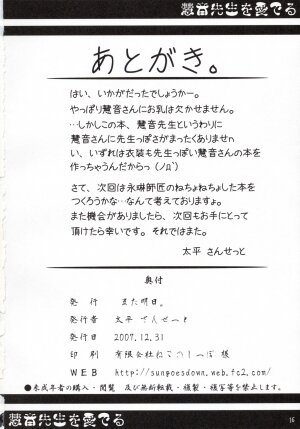 慧音先生を愛でる
あとがき。
はい、いかがだったでしょうかー。
やっぱり慧音さんにお乳は欠かせません。
…しかしこの本、慧音先生というわりに
慧音さんに先生っぽさがまったくありませn
い、いずれは衣装も先生っぽい慧音さんの本を
作っちゃうんだからっ（ノд`）
さて、次回は永琳師匠のねちょねちょした本を
つくろうかな…なんて考えておりますょ。
また機会がありましたら、次回もお手にとって
頂けたら幸いです。それではまた。
太平 さんせっと
奥付
発行 また明日。
発行者 太平 さんせっと
発行日 2007.12.31
印刷 有限会社ねこのしっぽ 様
WEB http://sungoesdown.web.fc2.com/
●未成年者の購入・閲覧 及び無断転載・複製・複写等を禁止します。
慧音先生を愛でる
16